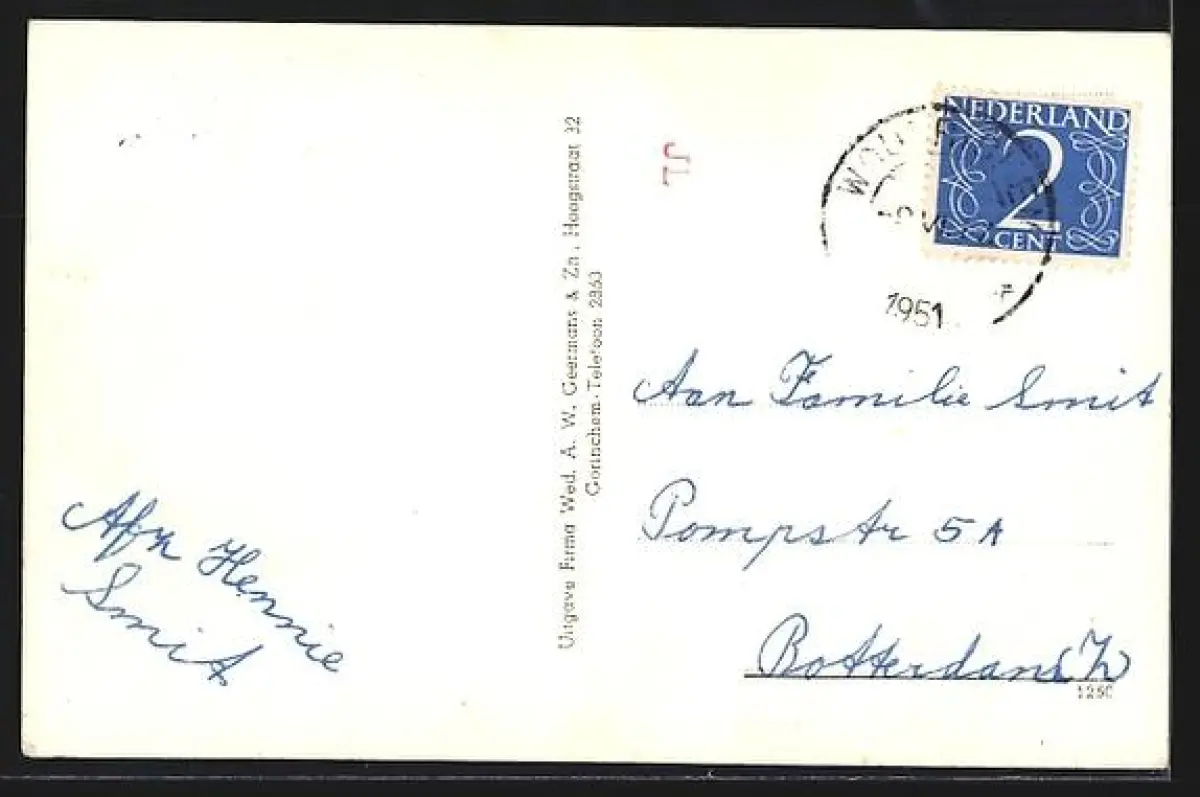 Afz Hennie
Smit
Uitgave Firma Wed. A. W. Geermans & Zn., Hoogstraat 32
Gorinchem - Telefoon 2863
JL
NEDERLAND
2
CENT
1951
Aan Familie Smit
Pompstr 5A
Rotterdam Z
1250